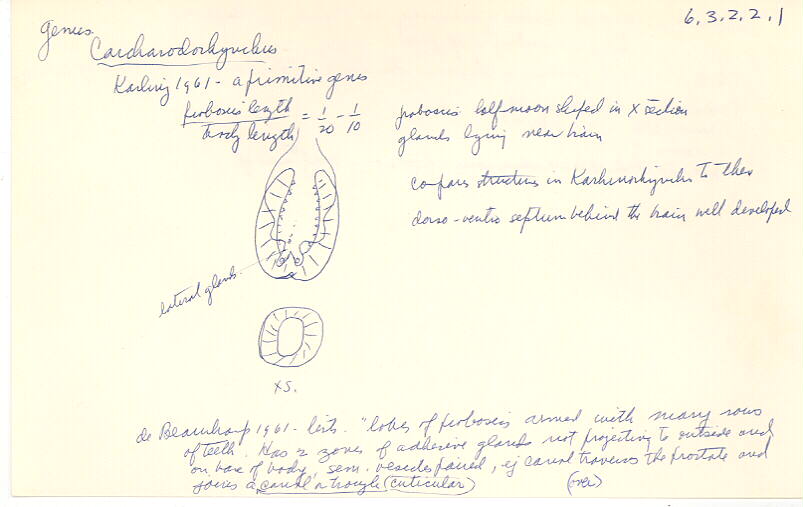 6.3.2.2.1
Genus
Carcharodorhynchus
Karling 1961 - a primitive genus
proboscis length / body length = 1/20 - 1/10
proboscis half moon shaped in x section
glands lying near brain
compare structures in Karkinorhynchus to these
dorso-ventro septum behind the brain well developed
lateral glands
XS.
de Beauchamp 1961 - lists. "lobes of proboscis armed with many rows
of teeth. Has 2 zones of adhesive glands not projecting to outside and
on base of body, sem. vesicles paired, ej canal traverses the prostate and
joins a "canal" a trough (cuticular)
(over)